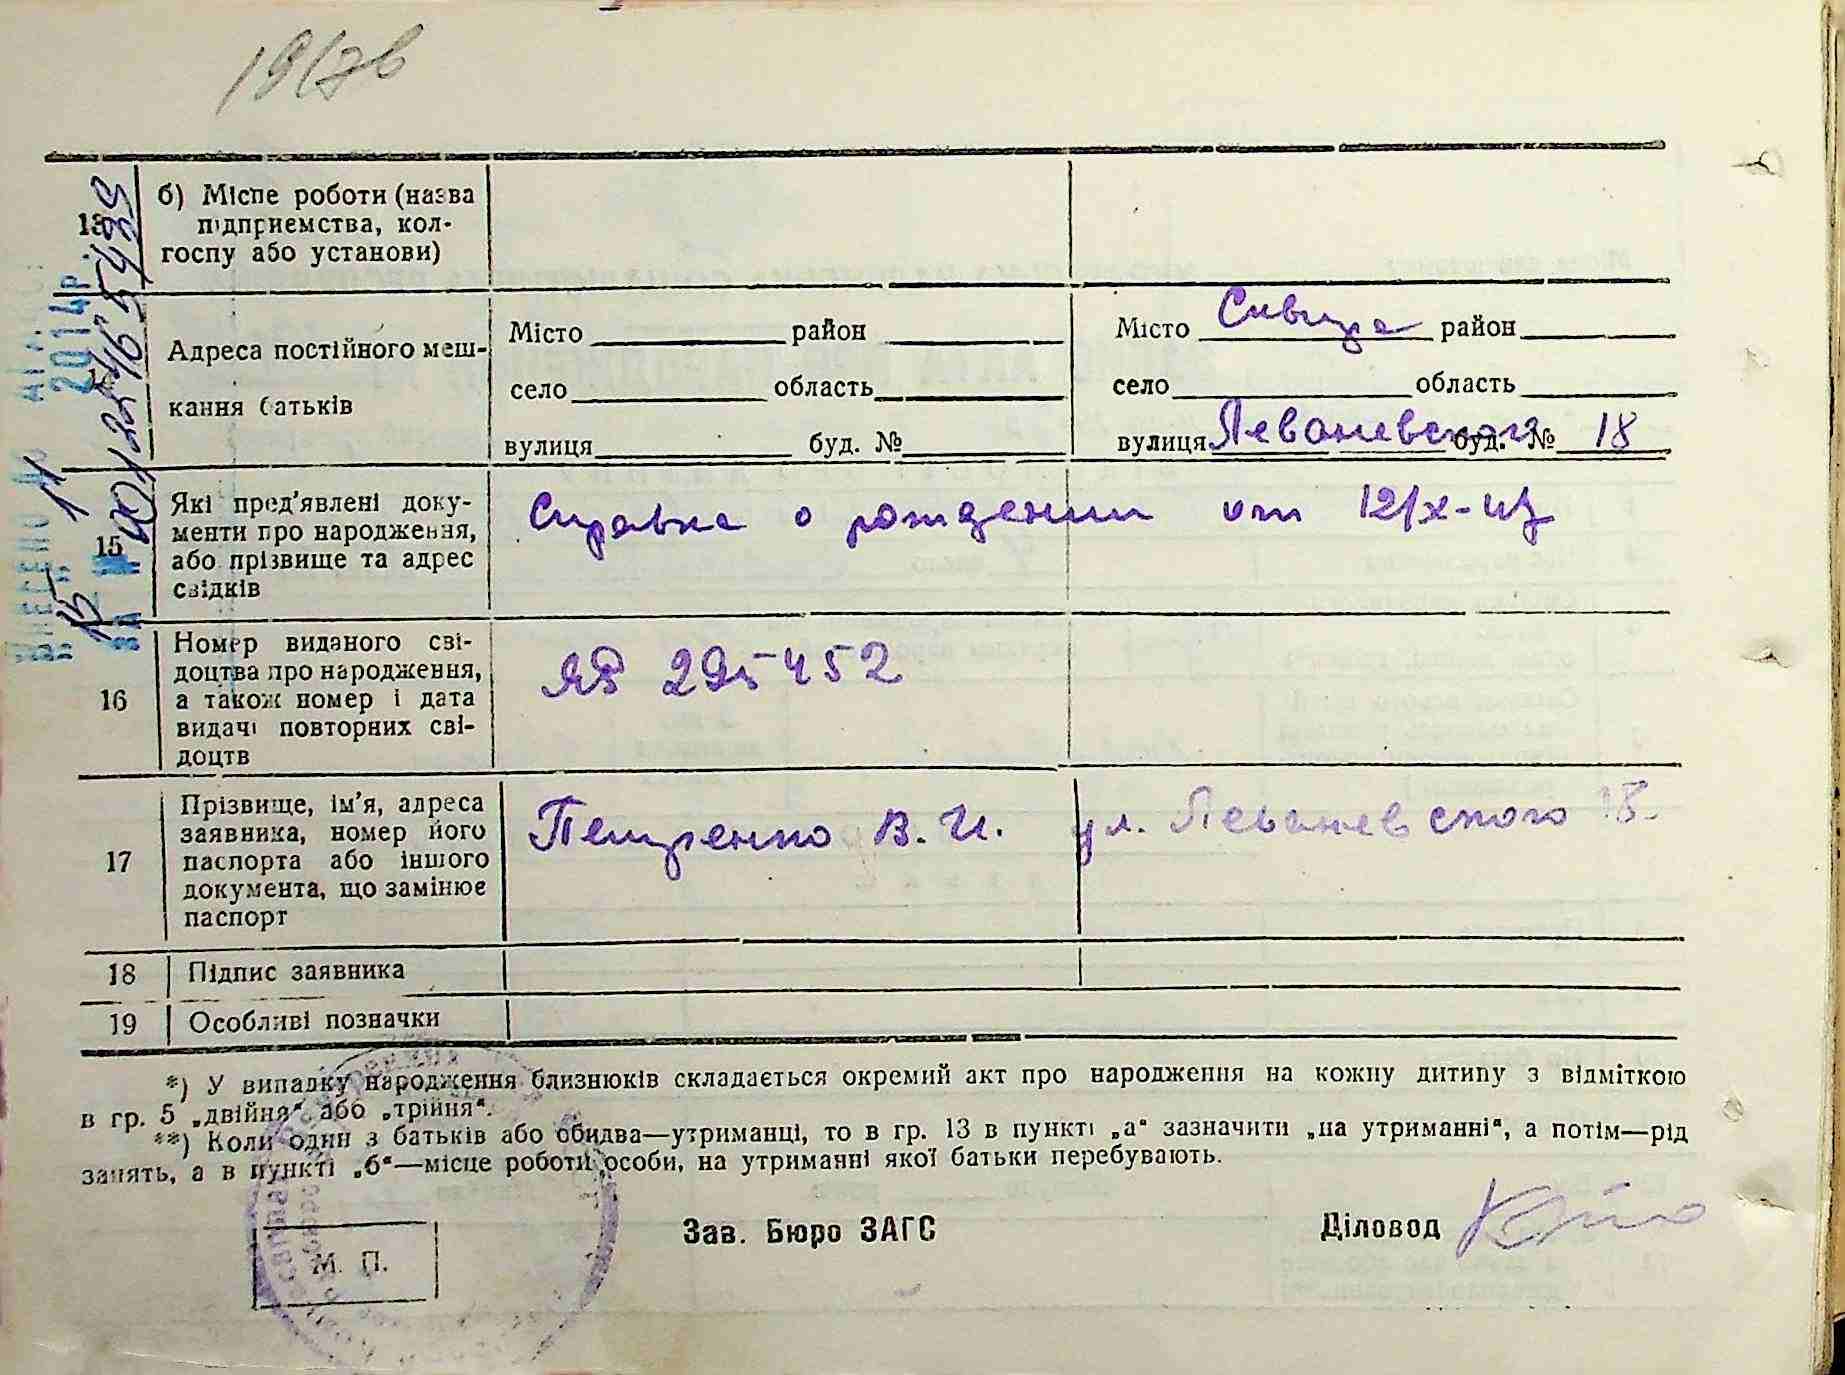 13
б) Місце роботи (назва
підприемства, кол-
госпу або установи)
Адреса постійного меш-
кання батьків
Місто район
село область
вулиця буд. №
Місто район
село область
вулиця Леваневского буд. № 18
15
Які пред'явлені доку-
менти про народження,
або прізвище та адрес
свідків
Справка о рождении от 12/X-
16
Номер виданого сві-
доцтва про народження,
а також номер і дата
видачі повторних сві-
доцтв
295452
17
Прізвище, ім'я, адреса
заявника, номер його
паспорта або іншого
документа, що замінює
паспорт
Петренко В. И. ул. Леваневского 18.
18 Підпис заявника
19 Особливі позначки
*) У випадку народження близнюків складається окремий акт про народження на кожну дитину з відміткою
в гр. 5 „двійня“ або „трійня“.
**) Коли один з батьків або обидва—утриманці, то в гр. 13 в пункті „а“ зазначити „на утриманні“, а потім—рід
занять, а в пункті „б“—місце роботи особи, на утриманні якої батьки перебувають.
Зав. Бюро ЗАГС
Діловод
М. П.
ВНЕСЕНО
2014р.
ЗА №
15 11